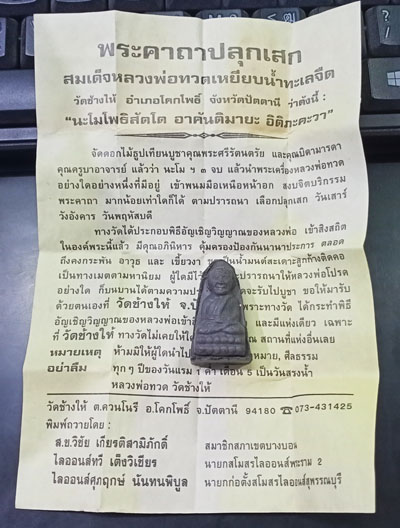 พระคาถาปลุกเสก
สมเด็จหลวงพ่อทวดเหยียบน้ำทะเลจืด
วัดช้างให้ อำเภอโคกโพธิ์ จังหวัดปัตตานี ว่าดังนี้ :
"นะโมโพธิสัตโต อาคันติมายะ อิติภะคะวา"
จัดดอกไม้ธูปเทียนบูชาคุณพระศรีรัตนตรัย และคุณบิดามารดา
คุณครูบาอาจารย์ แล้วว่า นะโม ฯ ๓ จบ แล้วนำพระเครื่องหลวงพ่อทวด
อย่างใดอย่างหนึ่งที่มีอยู่ เข้าพนมมือเหนือหน้าอก สงบจิตบริกรรม
พระคาถา มากน้อยเท่าใดก็ได้ ตามปรารถนา เลือกปลุกเสก วันเสาร์
วันอังคาร วันพฤหัสบดี
ทางวัดได้ประกอบพิธีอัญเชิญวิญญาณของหลวงพ่อ เข้าสิงสถิต
ในองค์พระนี้แล้ว มีคุณอภินิหาร คุ้มครองป้องกันนานาประการ ตลอด
ถึงคงกระพัน อาวุธ และ เขี้ยวงา เป็นน้ำมนต์สะเดาะลูกค้างติดคอ
เป็นทางเมตตามหานิยม ผู้ใดมีไว้ ปรารถนาให้หลวงพ่อโปรด
อย่างใด ก็บนบานได้ตามความ จะรับไปบูชา ขอให้มารับ
ด้วยตนเองที่ วัดช้างให้ จ.ป เพราะทางวัด ได้กระทำพิธี
อัญเชิญวิญญาณของหลวงพ่อเข้าสิ และมีแห่งเดียว เฉพาะ
ที่ วัดช้างให้ ทางวัดไม่เคยให้ สถานที่แห่งอื่นเลย
หมายเหตุ ห้ามมิให้ผู้ใดนำไป หมาย, ศีลธรรม
อย่าลืม ทุก ๆ ปีของวันแรม 1 ค่ำ เดือน 5 เป็นวันสรงน้ำ
หลวงพ่อทวด วัดช้างให้
วัดช้างให้ ต.ควนโนรี อ.โคกโพธิ์ จ.ปัตตานี 94180 ☎ 073-431425
พิมพ์ถวายโดย :
ส.ข.วิชัย เกียรติสามิภักดิ์ สมาชิกสภาเขตบางบอน
ไลออนส์ทวี เต็งวิเชียร นายกสโมสรไลออนส์พระราม 2
ไลออนส์ศุภฤกษ์ นันทนพิบูล นายกก่อตั้งสโมสรไลออนส์สุพรรณบุรี